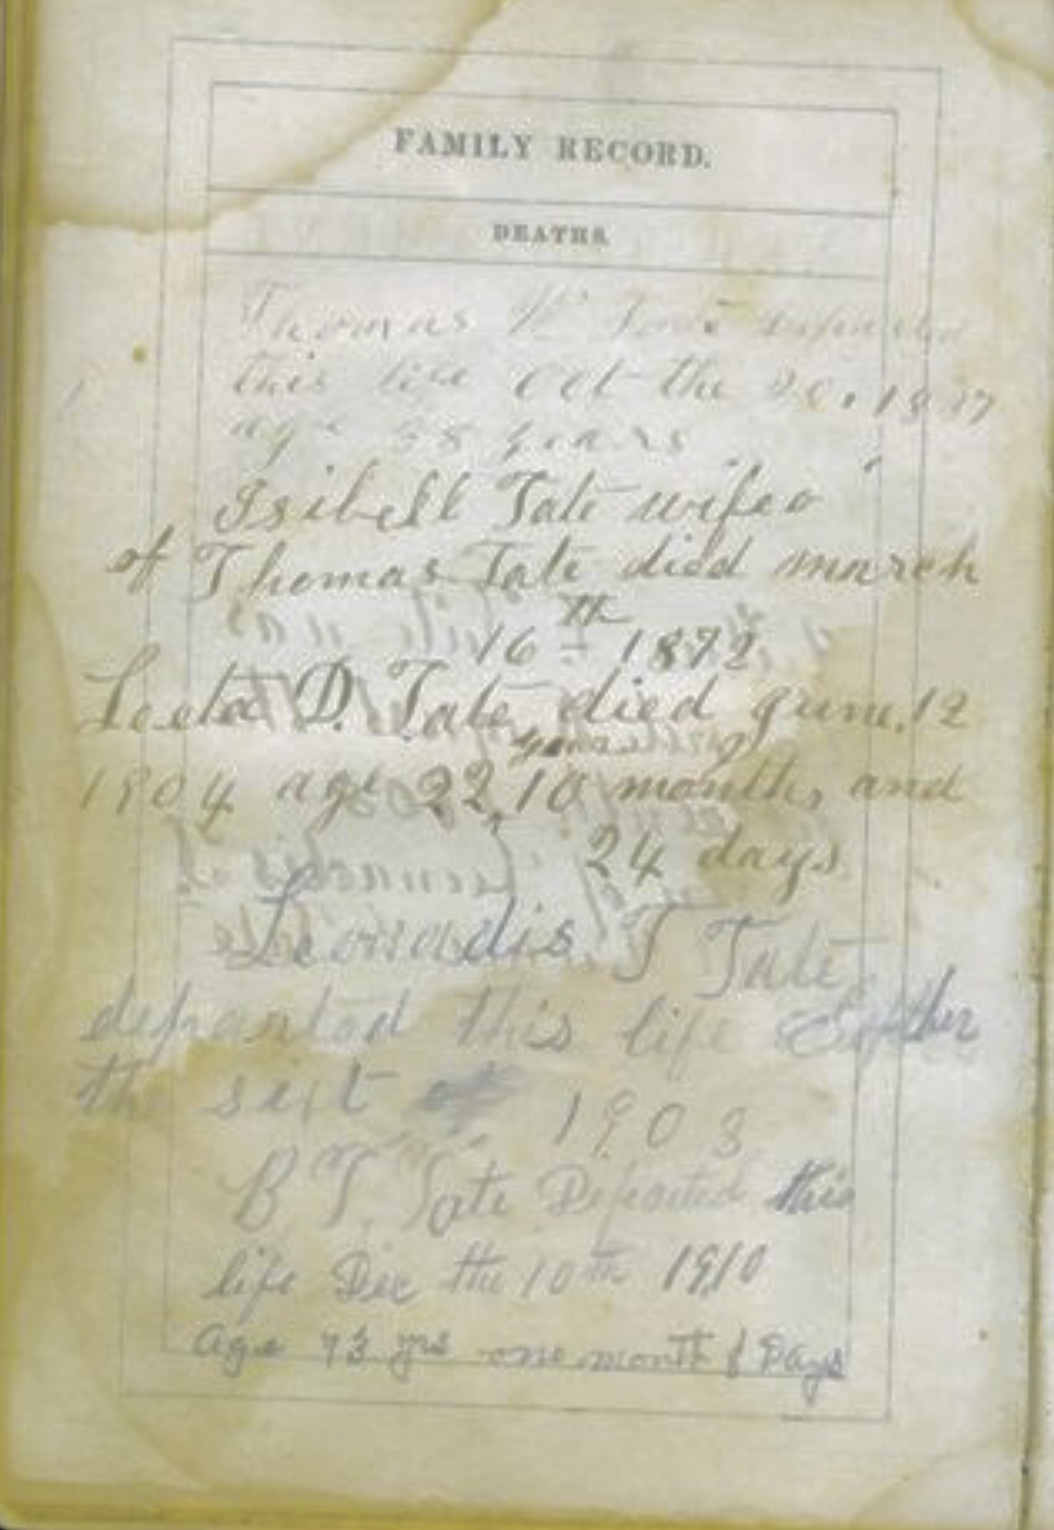 FAMILY RECORD.
DEATHS.
Thomas Tate Departed
this life Oct the 20, 18
age 58 years
Isibell Tate wifeo
of Thomas Tate died march
16 th 1872
Leeta D. Tate died June. 12
years
1904 age 22, 10 months, and
24 days
Leonadis. T Tate
departed this life
the sixt of 1908
B T. Tate Departed this
life Dec the 10 th 1910
age 73 yrs one month & Days